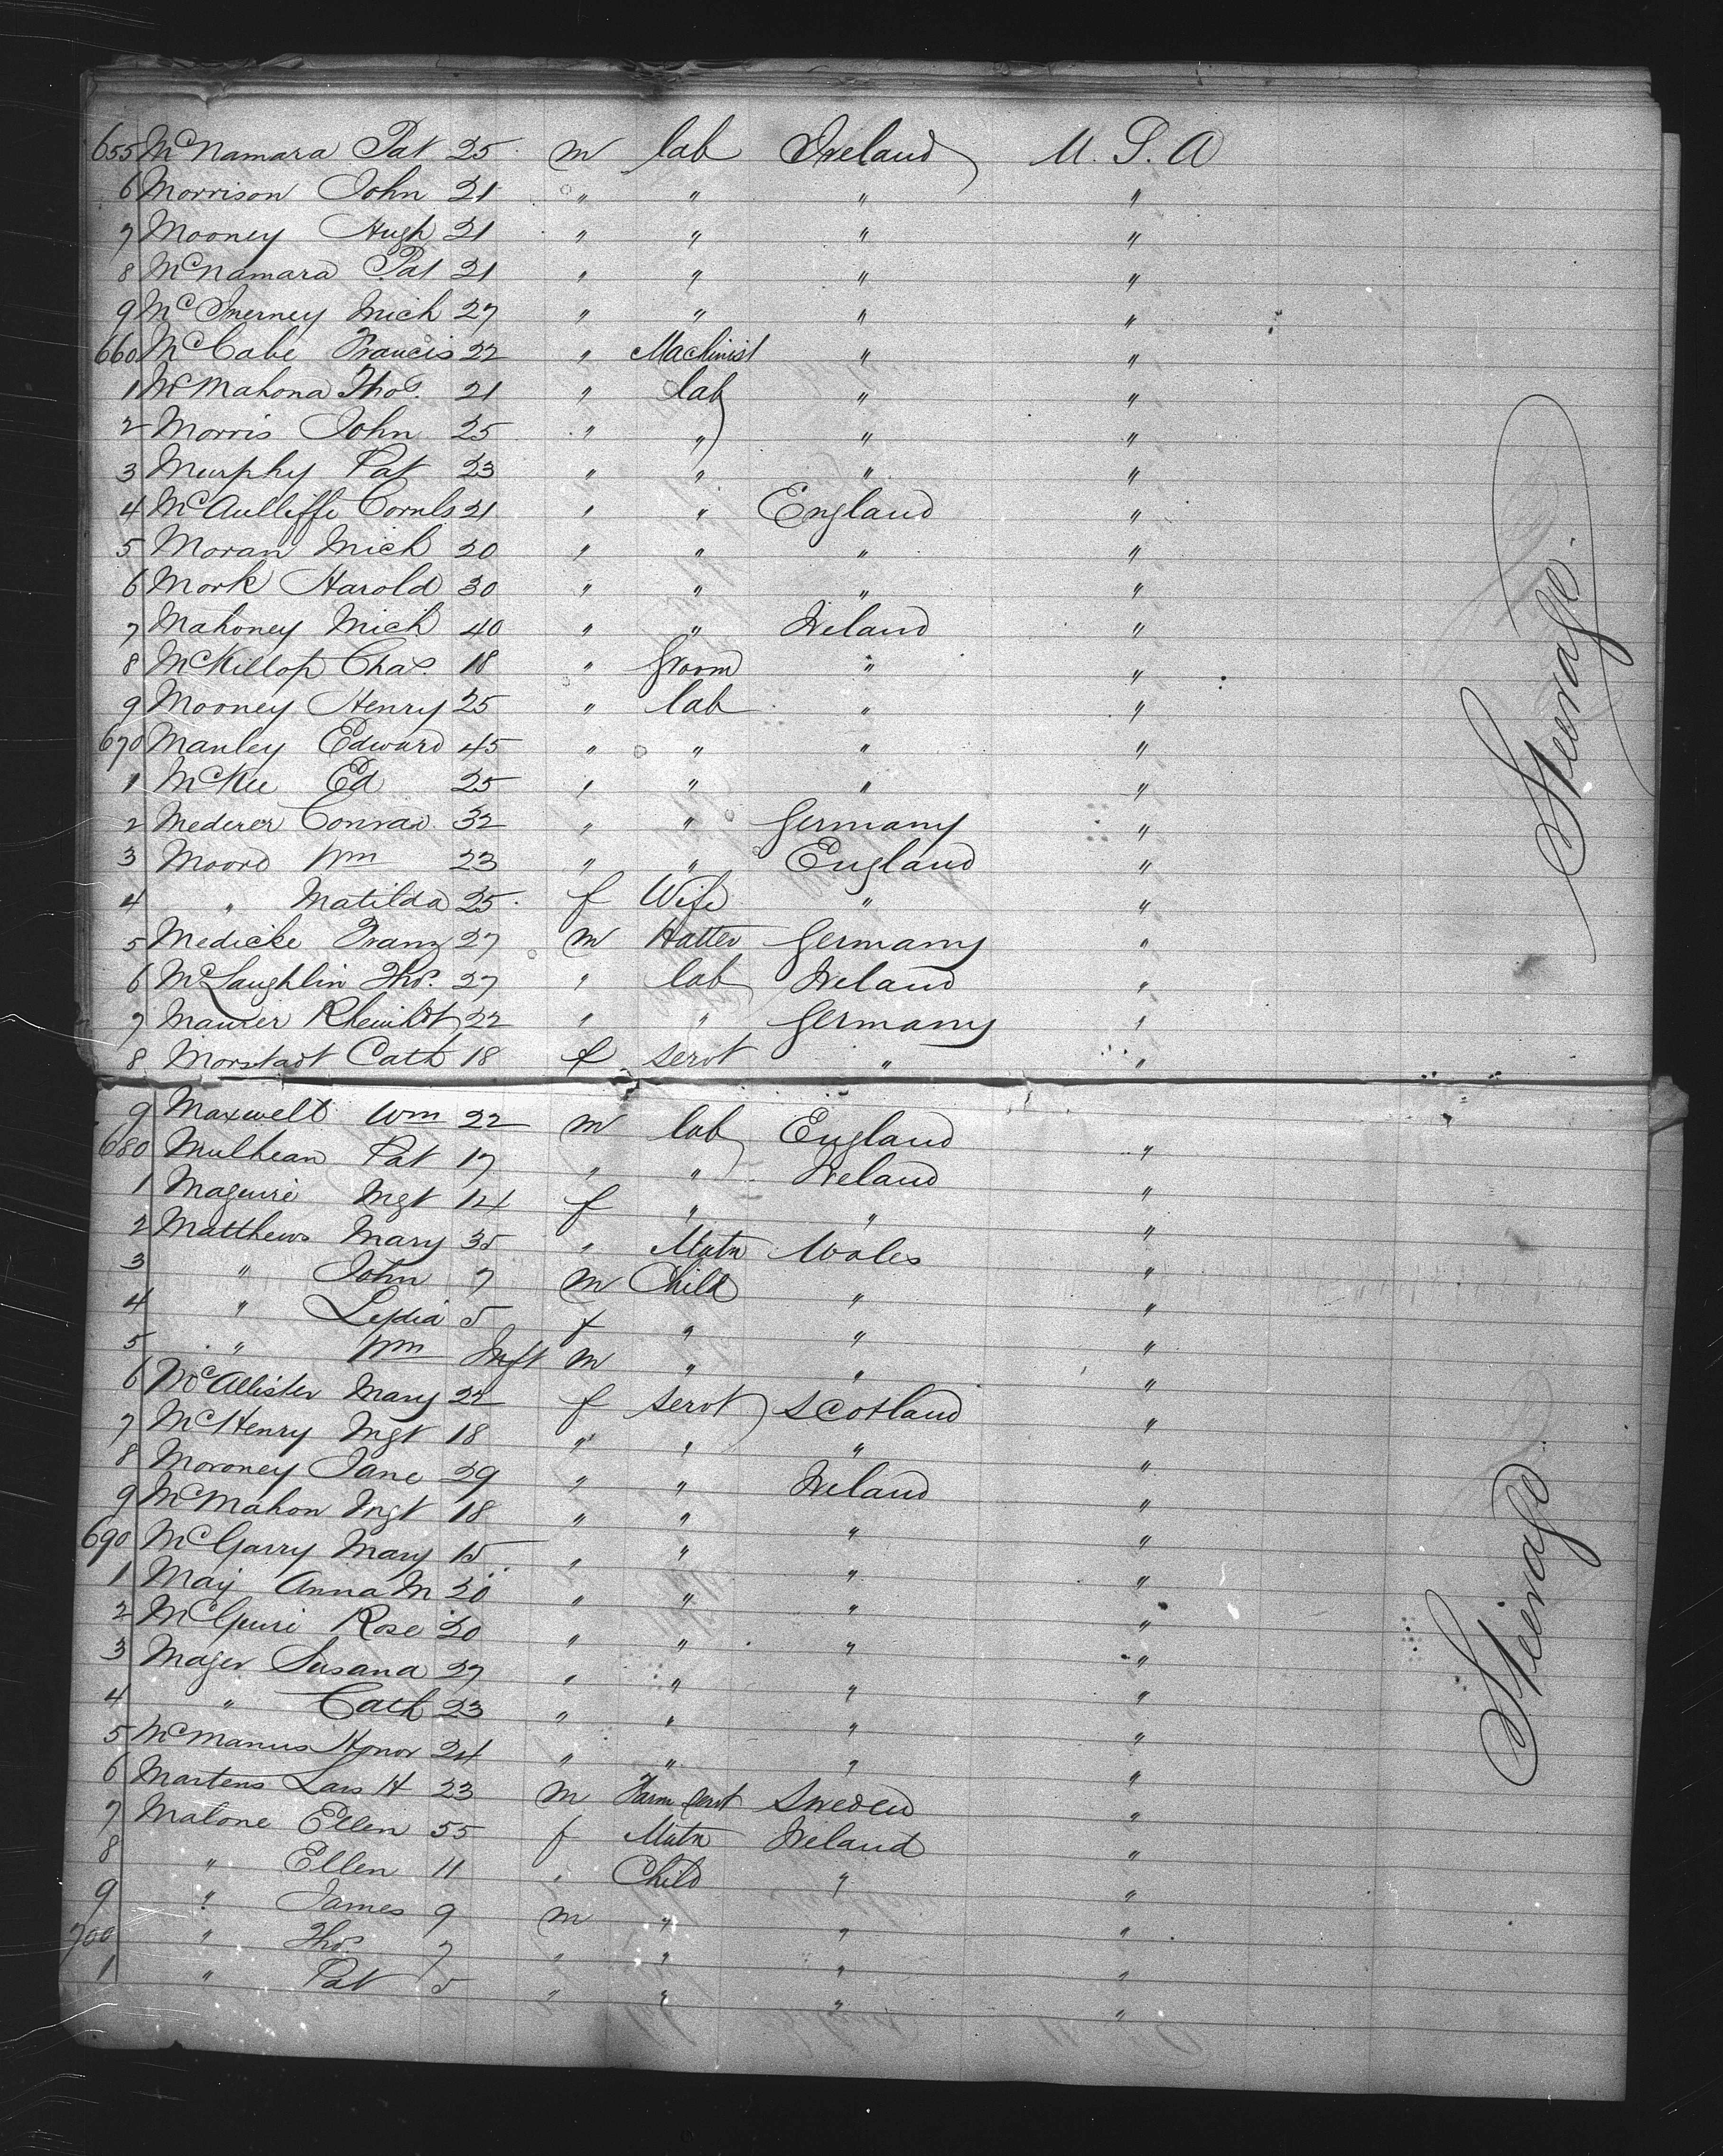 655 McNamara Pat 25 m lab Ireland U.S.A
6 Morrison John 21 " " " "
7 Mooney Hugh 21 " " " "
8 McNamara Pat 21 " " " "
9 McInerney Mich 27 " " " "
660 McCabe Francis 22 " Machinist " "
1 McMahona Thos. 21 " lab " "
2 Morris John 25 " " " "
3 Murphy Pat 23 " " " "
4 McAulliffe Cornls 21 " " England "
5 Moran Mich 20 " " " "
6 Mork Harold 30 " " " "
7 Mahoney Mich 40 " " Ireland "
8 McKillop Chas. 18 " Groom " "
9 Mooney Henry 25 " lab " "
670 Manley Edward 45 " " " "
1 McKee Ed 25 " " " "
2 Mederer Conrad 32 " " Germany "
3 Moord Wm 23 " " England "
4 " Matilda 25 f Wife " "
5 Medicke Franz 27 m Hatter Germany "
6 McLaughlin Thos. 27 " lab Ireland "
7 Maurer Rheinhdt 22 " " Germany "
8 Morstadt Cath 18 f servt " "
Steerage.
9 Maxwell Wm 22 m lab England "
680 Mulhean Pat 17 " " Ireland "
1 Maguire Mgt 14 f " " "
2 Matthews Mary 35 " Matn Wales "
3 " John 7 m Child " "
4 " Lydia 5 f " " "
5 " Wm Inft m " " "
6 McAllister Mary 22 f servt Scotland "
7 McHenry Mgt 18 " " " "
8 Moroney Jane 29 " " Ireland "
9 McMahon Mgt 18 " " " "
690 McGarry Mary 15 " " " "
1 Maij Anna M 20 " " " "
2 McGuire Rose 20 " " " "
3 Mager Susana 27 " " " "
4 " Cath 23 " " " "
5 McManus Honor 24 " " " "
6 Martens Lars H 23 m Farm servt Sweden "
7 Malone Ellen 55 f Matn Ireland "
8 " Ellen 11 " Child " "
9 " James 9 m " " "
700 " Thos. 7 " " " "
1 " Pat 5 " " " "
Steerage